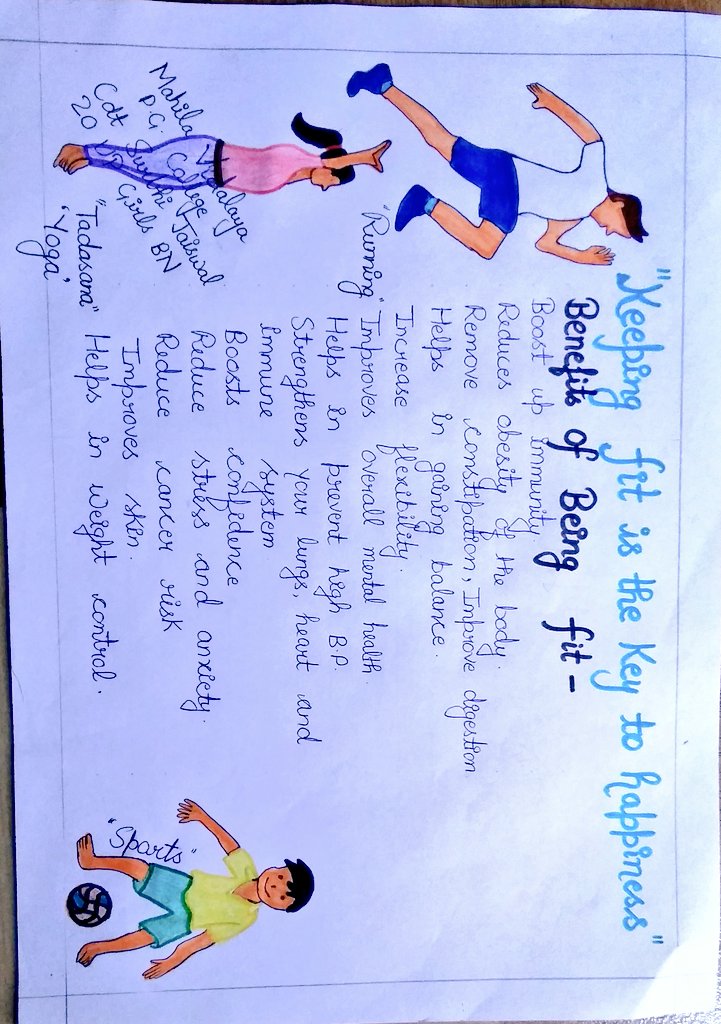 "Keeping fit is the Key to happiness"
Benefits of Being fit -
Boost up immunity
Reduces obesity of the body.
Remove constipation, Improve digestion
Helps in gaining balance.
Increase flexibility.
Improves overall mental health
Helps in prevent high B.P.
Strengthens your lungs, heart and
immune system
Boosts confidence
Reduce stress and anxiety.
Reduce cancer risk
Improves skin.
Helps in weight control.
"Running"
"Tadasana"
'Yoga'
"Sports"
Mahila Vidyalaya
P.G. College
Cdt Surbhi Jaiswal
20 UP Girls BN